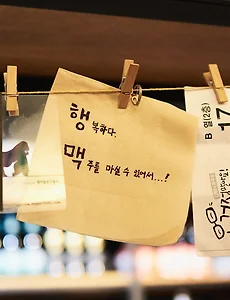 행복하다.
맥주를 마실 수 있어서...!
B 열(2층)
17